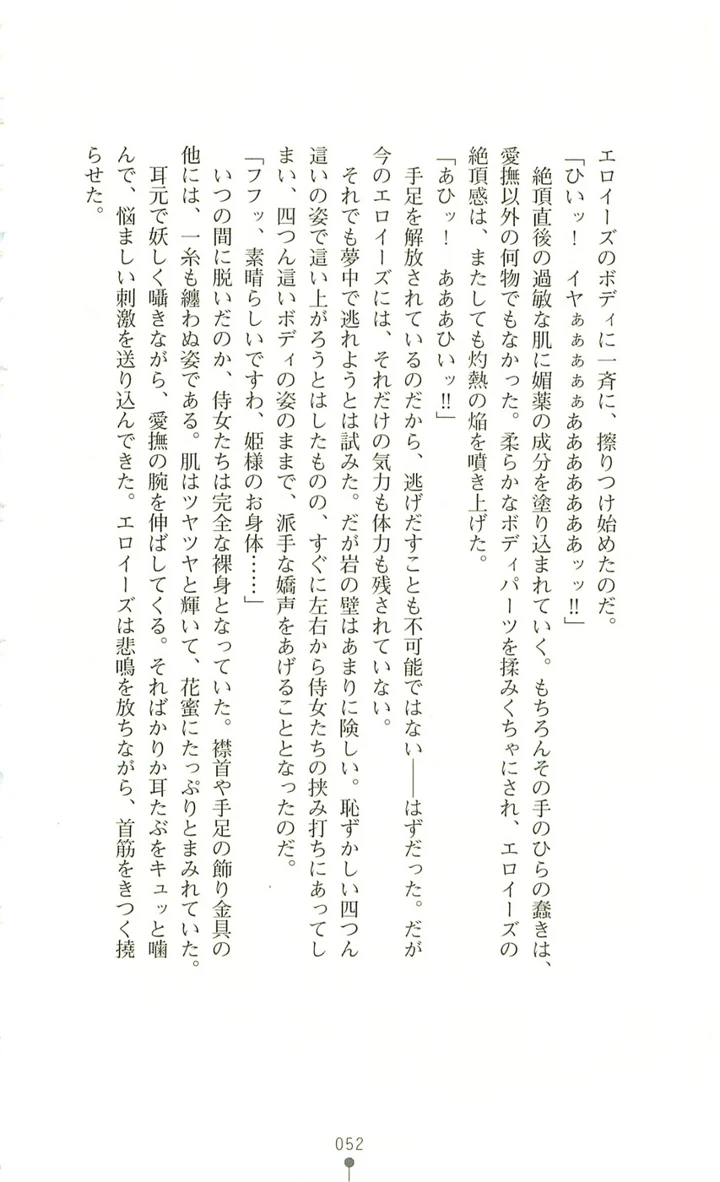 エロイーズのボディに一斉に、擦りつけ始めたのだ。
「ひいッ！　イヤぁぁぁぁぁあああああああッッ!!」
　絶頂直後の過敏な肌に媚薬の成分を塗り込まれていく。もちろんその手のひらの蠢きは、
愛撫以外の何物でもなかった。柔らかなボディパーツを揉みくちゃにされ、エロイーズの
絶頂感は、またしても灼熱の焔を噴き上げた。
「あひッ！　あああひいッ!!」
　手足を解放されているのだから、逃げだすことも不可能ではない――はずだった。だが
今のエロイーズには、それだけの気力も体力も残されていない。
　それでも夢中で逃れようとは試みた。だが岩の壁はあまりに険しい。恥ずかしい四つん
這いの姿で這い上がろうとはしたものの、すぐに左右から侍女たちの挟み打ちにあってし
まい、四つん這いボディの姿のままで、派手な嬌声をあげることとなったのだ。
「フフッ、素晴らしいですわ、姫様のお身体……」
　いつの間に脱いだのか、侍女たちは完全な裸身となっていた。襟首や手足の飾り金具の
他には、一糸も纏わぬ姿である。肌はツヤツヤと輝いて、花蜜にたっぷりとまみれていた。
　耳元で妖しく囁きながら、愛撫の腕を伸ばしてくる。そればかりか耳たぶをキュッと噛
んで、悩ましい刺激を送り込んできた。エロイーズは悲鳴を放ちながら、首筋をきつく撓
らせた。
052